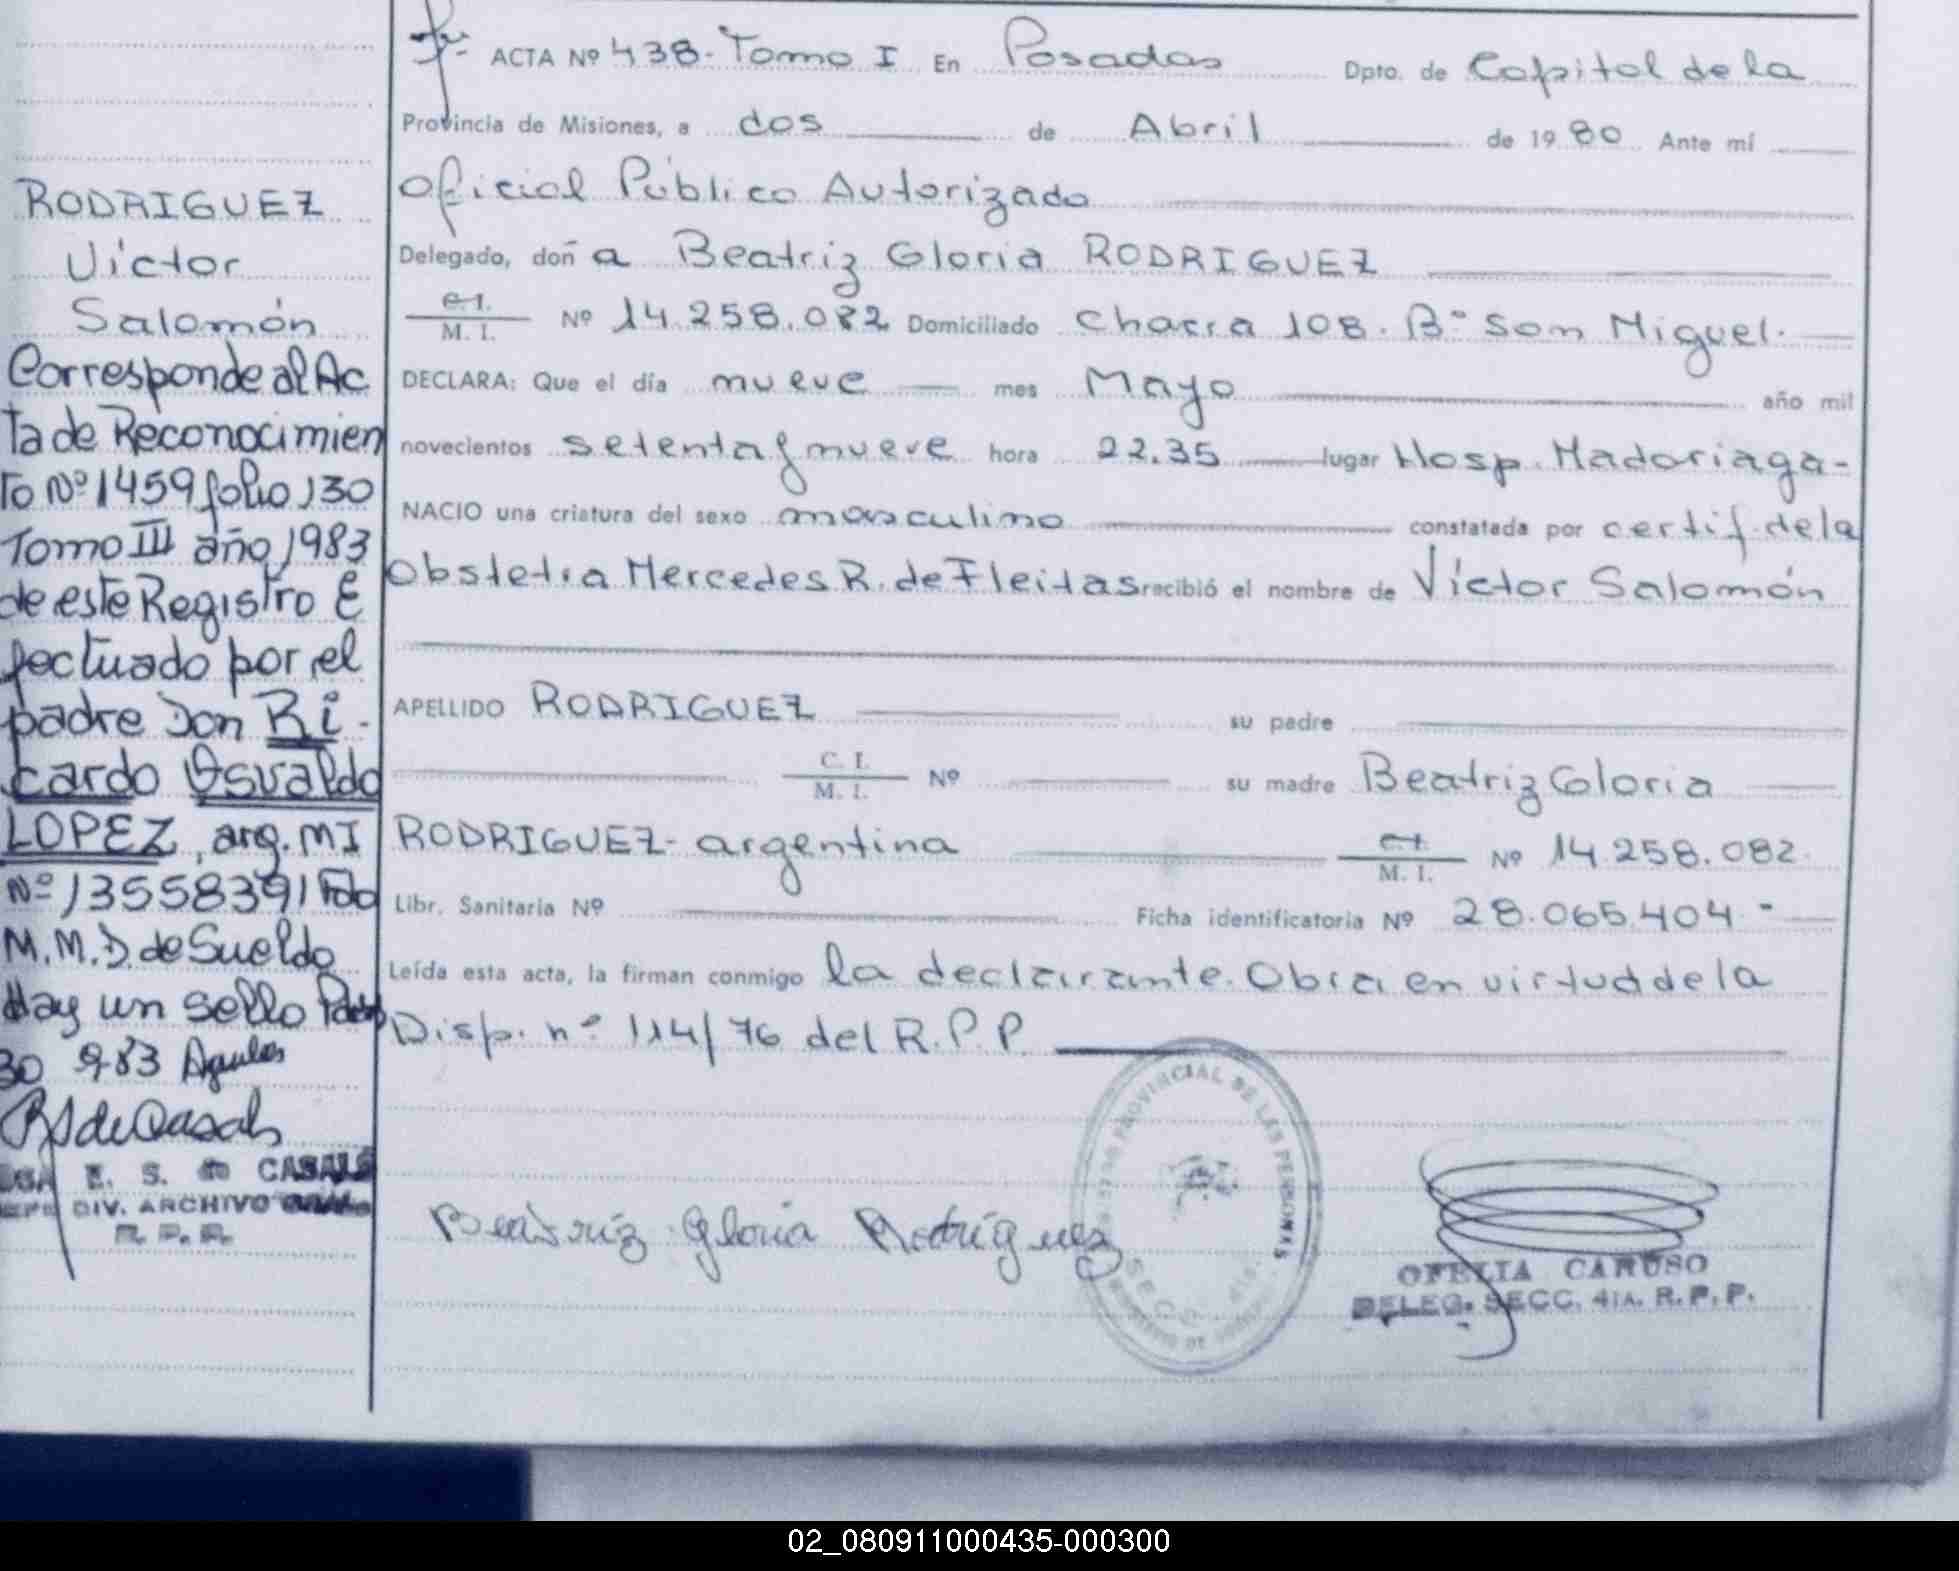 RODRIGUEZ
Victor
Salomón
Corresponde al Ac
ta de Reconocimien
to Nº 1459 folio 130
Tomo III año 1983
de este Registro E
fectuado por el
padre Don Ri-
cardo Osvaldo
LOPEZ, arg. MI
Nº 13558391 Fdo
M.M.D. de Sueldo
Hay un sello
30 9 83
E. S. de CASALS
DIV. ARCHIVO
R. P. P.
ACTA Nº 438- Tomo I En Posadas Dpto. de Capital de la
Provincia de Misiones, a dos de Abril de 1980 Ante mí
Oficial Público Autorizado
Delegado, doña Beatriz Gloria RODRIGUEZ
C. I.
M. I. Nº 14.258.082 Domiciliado Chacra 108. Bº San Miguel.
DECLARA: Que el día nueve mes Mayo año mil
novecientos setenta y nueve hora 22.35 lugar Hosp. Madariaga-
NACIO una criatura del sexo masculino constatada por certif. de la
Obstetra Mercedes R. de Fleitas recibió el nombre de Víctor Salomón
APELLIDO RODRIGUEZ su padre
C. I.
M. I. Nº su madre Beatriz Gloria
RODRIGUEZ- argentina C. I.
M. I. Nº 14.258.082.
Libr. Sanitaria Nº Ficha identificatoria Nº 28.065.404-
Leída esta acta, la firman conmigo la declarante. Obra en virtud de la
Disp. nº 114/76 del R.P.P.
PROVINCIAL DE LAS PERSONAS
Beatriz Gloria Rodríguez
OFELIA CARUSO
DELEG. SECC. 4ta. R. P. P.
02_080911000435-000300